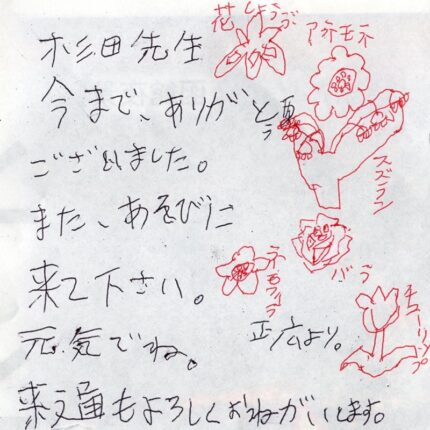 杉田先生
花しょうぶ
アネモネ
今まで、ありがとう
ございました。
スズラン
また、あそびに
バラ
ネモフィラ
来て下さい。
チューリップ
元気でね。
正広より。
文通もよろしくおねがいします。